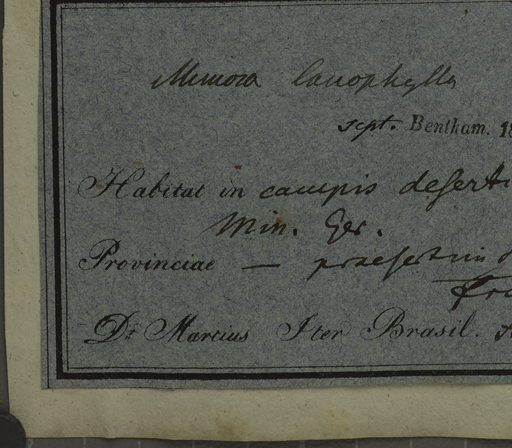 Mimosa lanophylla
sept. Bentham. 18
Habitat in campis deserti
Min. Ger.
Provinciae — praesertim
Dr Martius Iter Brasil.